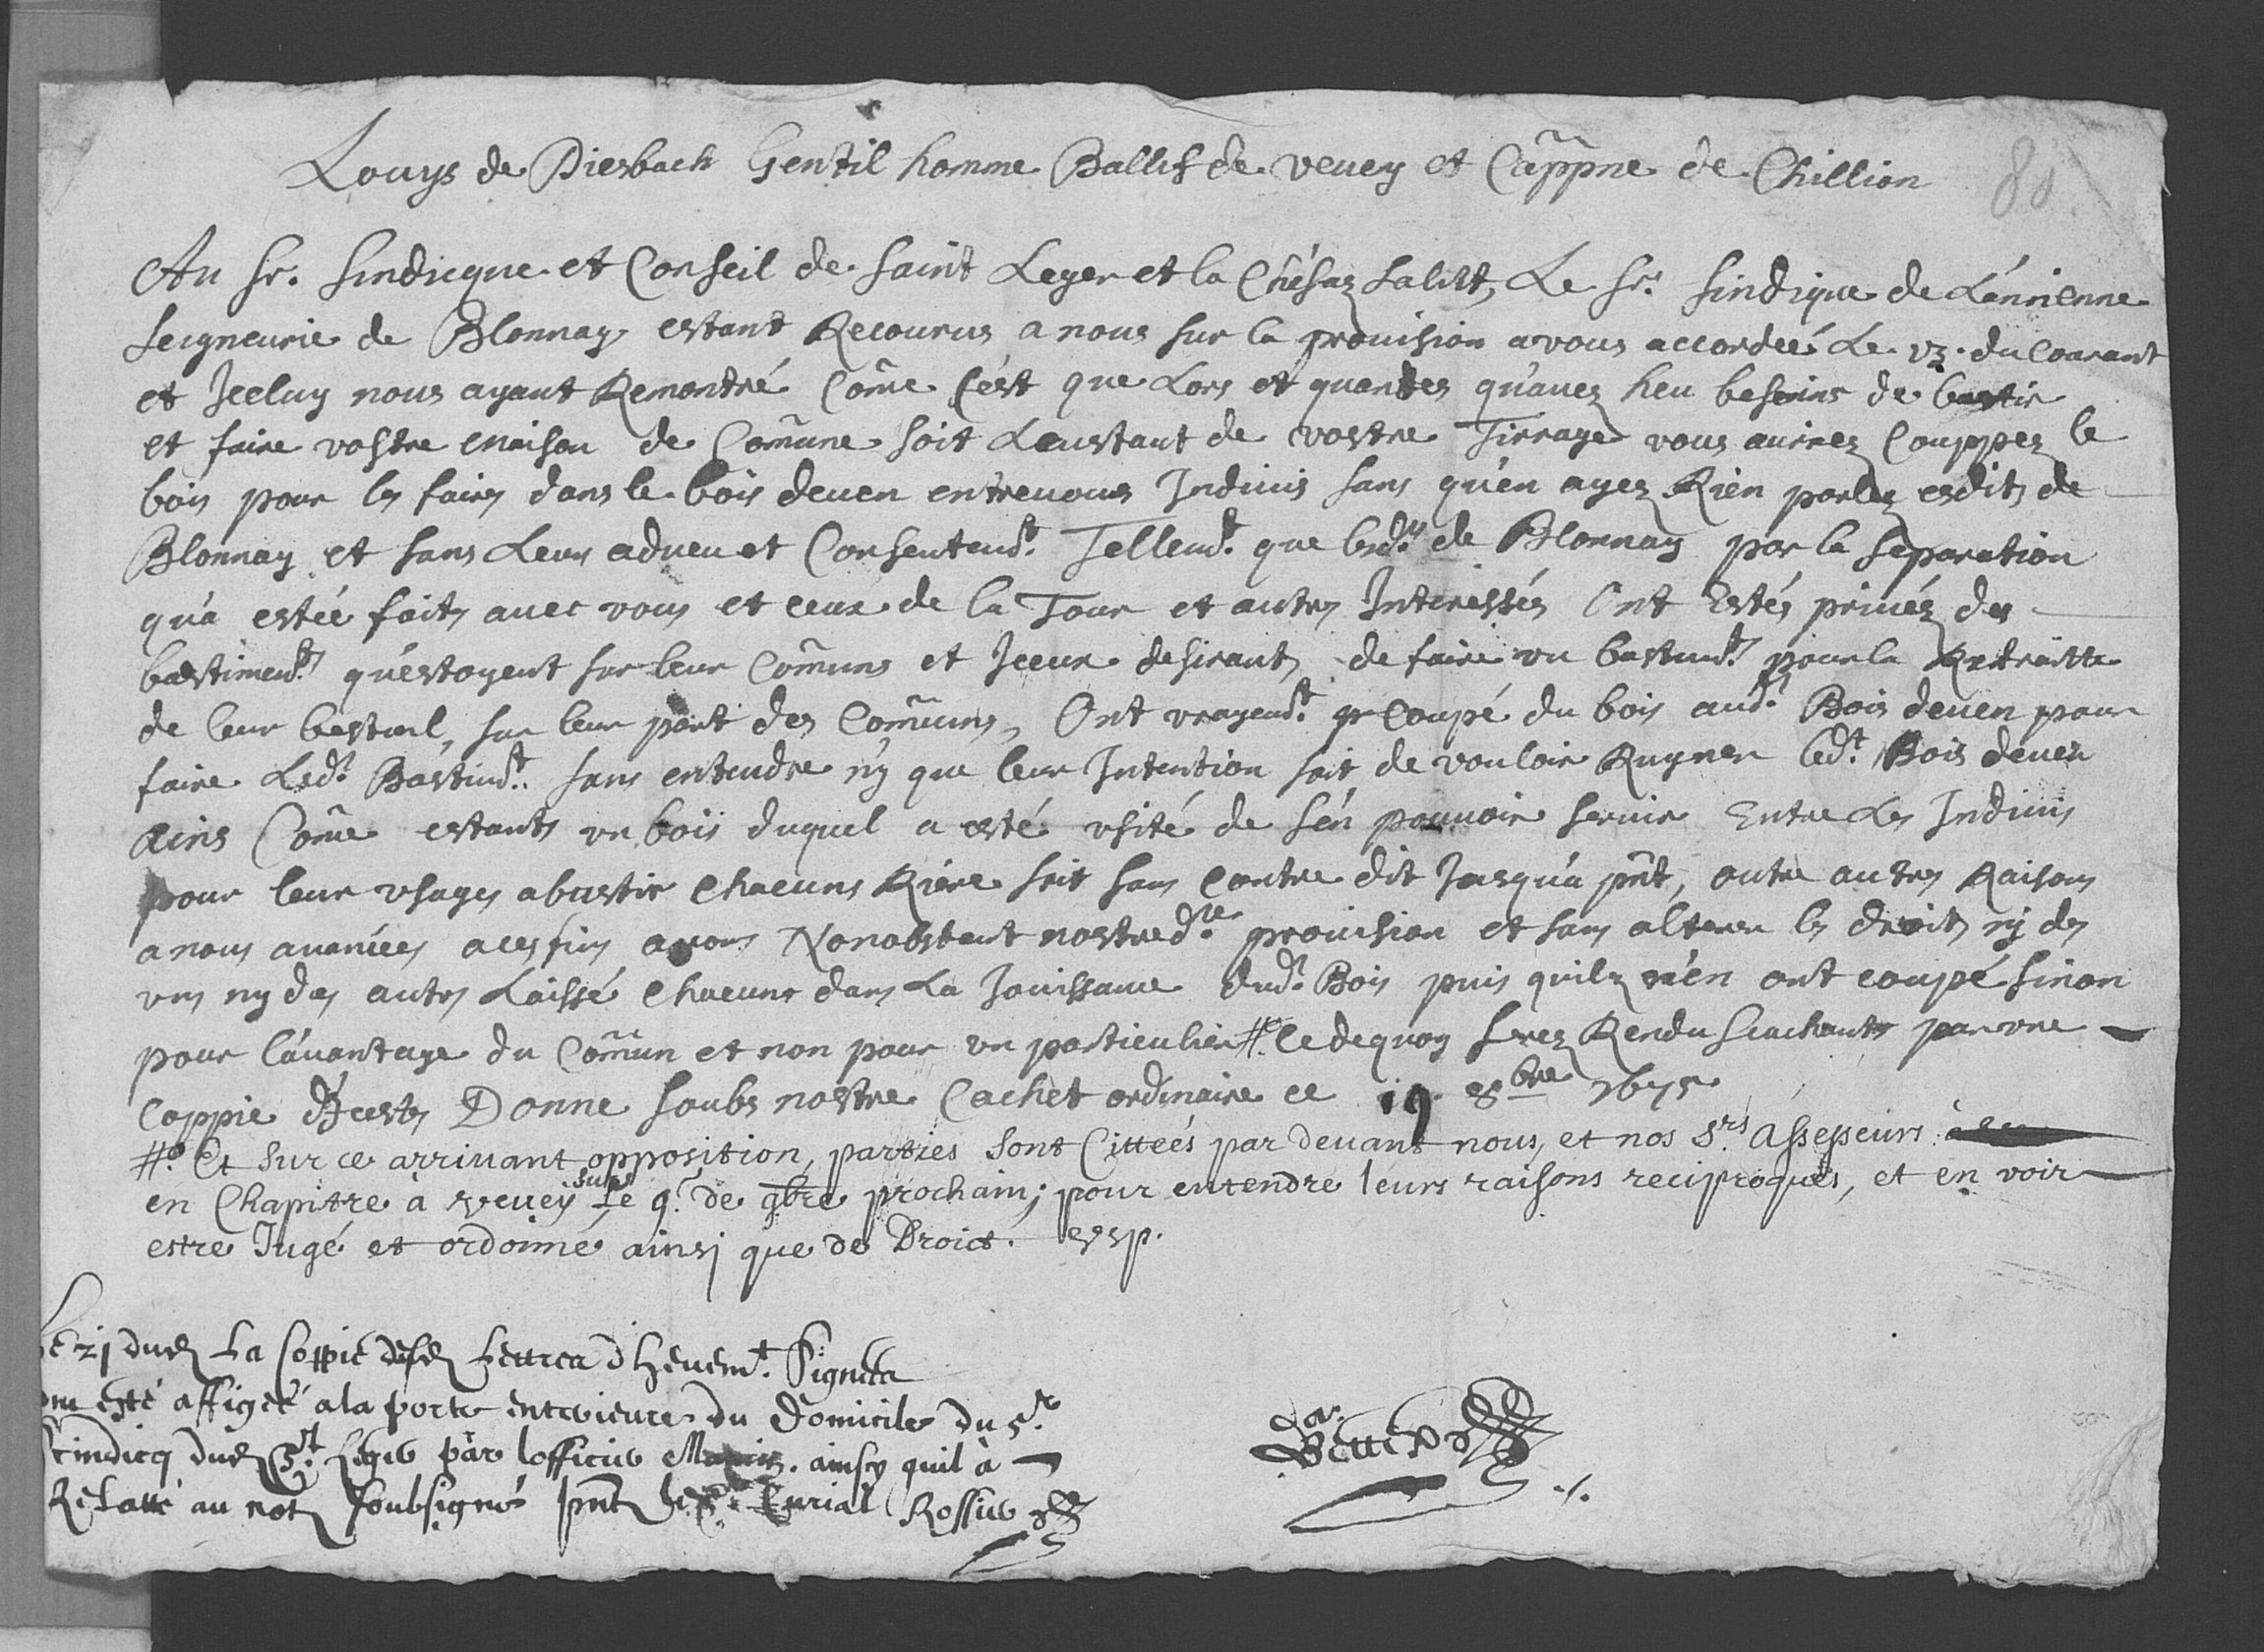 Louys de Diesbach Gentil homme Ballif de vevey et Cappne de Chillion
80
Au sr. sindicque et Conseil de saint Leger et la Chésaz salut, Le sr. sindique de Lénnienne
seigneurie de Blonnay estant Recourus a nous sur la provision a vous accordeé Le 13. du Courant
et Jceluy nous ayant Remontré Cõme C'ést que Lors et quantes qu'avez heu besoins de bastir
et faire vostre maison de Comune soit Leustant de vostre Tirrage vous auriez Couppez le
bois pour les faires dans le bois deven entrevous Indivis sans qu'én ayez Rién parlez esdits de
Blonnay et sans Leur adveu et Consentemt. Tellemt. que lesdts de Blonnay par la separation
qu'a estée faits avec vous et ceux de la Tour et autres Interessés Ont Estés privéz des
bastiments qu'estoyent sur leur Cõmuns et Jceux desirants de faire un bastimt. pour la Retraitte
de leur bestiail, sur leur part des Cõmuns, Ont vrayemt. coupé du bois audt. Bois deven pour
faire Ledt. Bastimt. sans entendre n'y que leur Intention soit de vouloir Ruyner ledt. Bois deven
Ains Cõme estants un bois duquel a esté usité de s'én pouvoir servir Entre Les Indivis
pour leur usages abastir Chacuns Riere soit sans Contre dit Jusqu'à pñt, outre autres Raisons
a nous avancées a ces fins avons Nonobstant nostredte provision et sans alterer les droits n'y des
uns ny des autres Laissé Chacuns dans La Jouissance dudt. Bois puis quilz n'én ont coupé sinon
pour l'ávantage du Cõmun et non pour un particulier #. Ce de quoy serez Rendu scachants par une
Coppie d'Jcestes Donne soubs nostre Cachet ordinaire ce 19 8bre 1675
#. Et sur ce arrivant opposition, parties sont Cittées par devant nous, et nos srs Assesseurs
en Chapitre à Vevey sur le 9e de 9bre prochain; pour entendre leurs raisons reciproques, et en voir
estre Jugé et ordonné ainsj que de Droict.
Le 21 dud La Coppie Lettres d'hevemt. Signées
esté affigée a la porte enterieure du Domicile du sr.
sindicq dud St. Legier par lofficier ainsy quil à
Relatté au not soubsigné pnt Curial Rossier